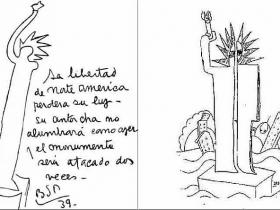 La libertad
de Norte America
perdera su luz -
su antorcha no
alumbrará como ayer
y el monumento
será atacado dos
veces -
BSP
39.